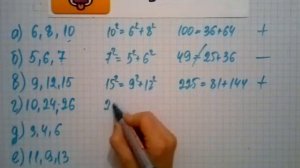 а) 6, 8, 10 10²=6²+8² 100=36+64 +
б) 5, 6, 7 7²=5²+6² 49≠25+36 –
в) 9, 12, 15 15²=9²+12² 225=81+144 +
г) 10, 24, 26 2
д) 3, 4, 6
е) 11, 9, 13